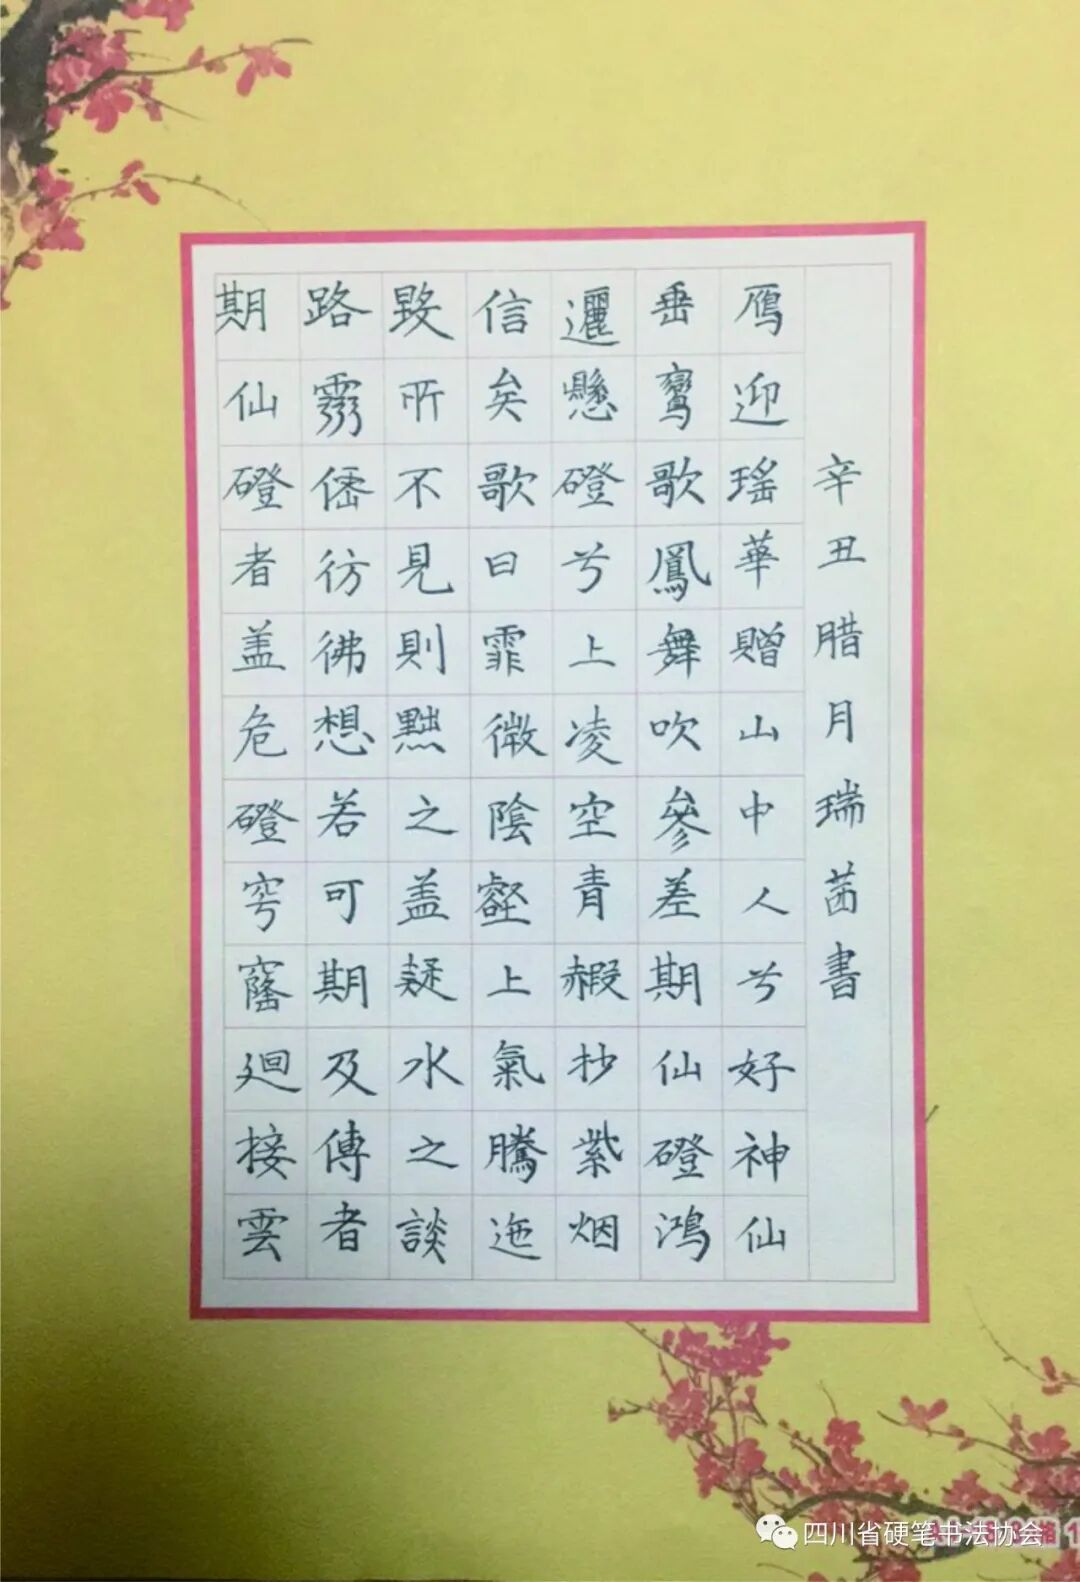 期仙磴者盖危磴穹窿廻接雲
路雱僊彷彿想若可期及傳者
毀所不見則黜之盖疑水之談
信矣歌曰霏微陰壑上氣騰迤
邐懸磴兮上凌空青赮抄紫烟
垂鸞歌鳳舞吹參差期仙磴鴻
鴈迎瑤華贈山中人兮好神仙
辛丑腊月瑞茜書
四川省硬笔书法协会